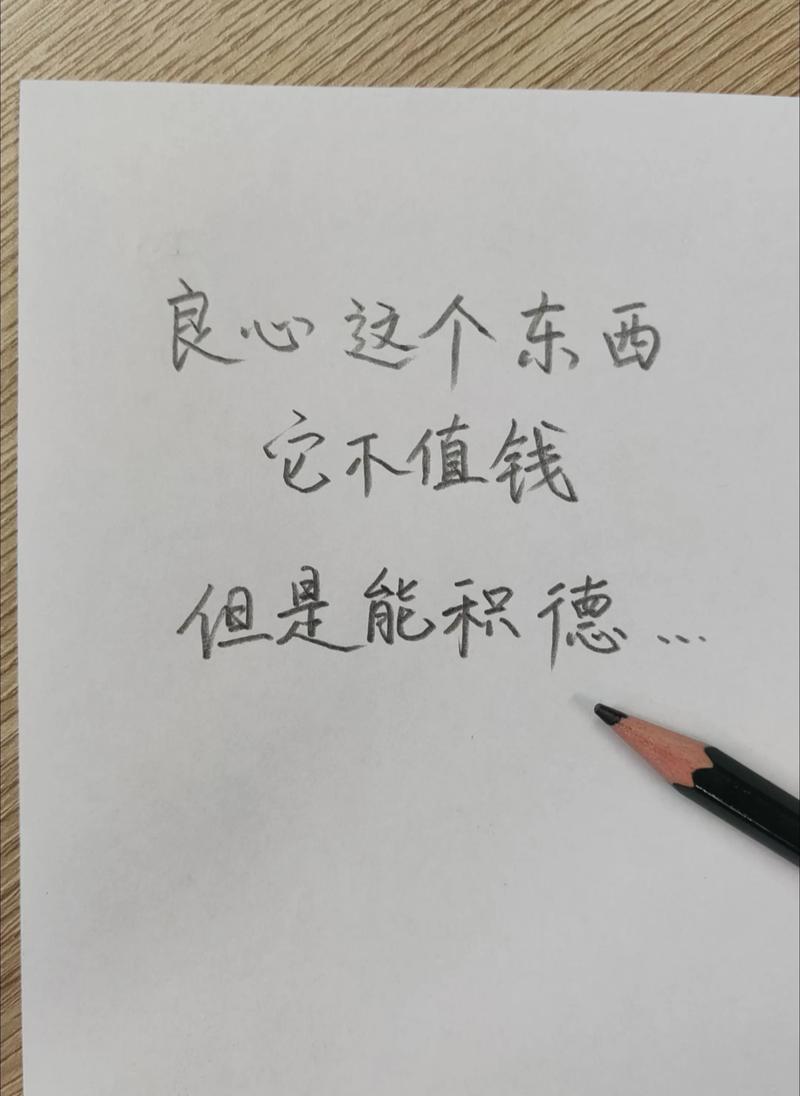 良心这个东西
它不值钱
但是能积德...